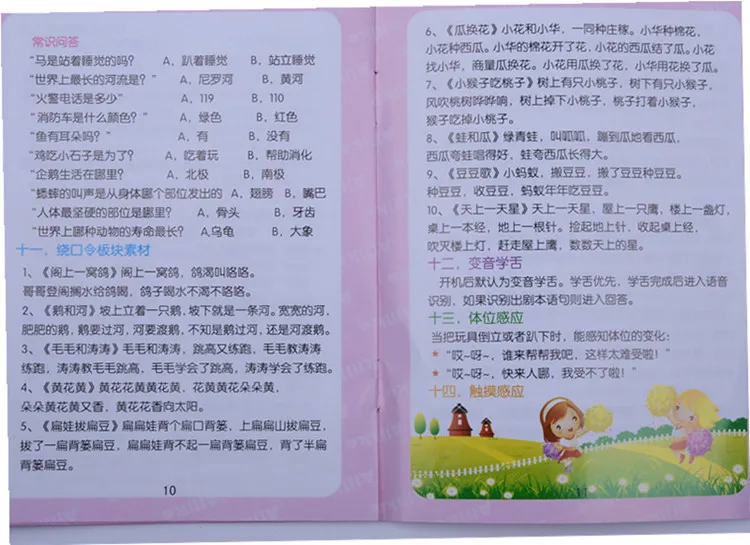 常识问答
“马是站着睡觉的吗?” A，趴着睡觉 B，站立睡觉
“世界上最长的河流是? ” A，尼罗河 B，黄河
“火警电话是多少” A，119 B，110
“消防车是什么颜色? ” A，绿色 B，红色
“鱼有耳朵吗? ” A，有 B，没有
“鸡吃小石子是为了? A，吃着玩 B，帮助消化
“企鹅生活在哪里? A，北极 B，南极
“蟋蟀的叫声是从身体哪个部位发出的 A，翅膀 B，嘴巴
“人体最坚硬的部位是哪里? A，骨头 B，牙齿
“世界上哪种动物的寿命最长? A,乌龟 B，大象
十一、绕口令板块素材
1、《阁上一窝鸽》阁上一窝鸽，鸽渴叫咯咯。
哥哥登阁搁水给鸽喝，鸽子喝水不渴不咯咯。
2、《鹅和河》坡上立着一只鹅，坡下就是一条河。宽宽的河，
肥肥的鹅，鹅要过河，河要渡鹅，不知是鹅过河，还是河渡鹅。
3、《毛毛和涛涛》毛毛和涛涛，跳高又练跑，毛毛教涛涛
练跑，涛涛教毛毛跳高，毛毛学会了跳高，涛涛学会了练跑。
4、《黄花黄》黄花花黄黄花黄，花黄黄花朵朵黄，
朵朵黄花黄又香，黄花花香向太阳。
5、《扁娃拔扁豆》扁扁娃背个扁口背篓，上扁扁山拔扁豆，
拔了一扁背篓扁豆，扁扁娃背不起一扁背篓扁豆，背了半扁
背篓扁豆。
10
6、《瓜换花》小花和小华，一同种庄稼。小华种棉花，
小花种西瓜。小华的棉花开了花，小花的西瓜结了瓜。小花
找小华，商量瓜换花。小花用瓜换了花，小华用花换了瓜。
7、《小猴子吃桃子》树上有只小桃子，树下有只小猴子，
风吹桃树哗哗响，树上掉下小桃子，桃子打着小猴子，
猴子吃掉小桃子。
8、《蛙和瓜》绿青蛙，叫呱呱，蹦到瓜地看西瓜，
西瓜夸蛙唱得好，蛙夸西瓜长得大。
9、《豆豆歌》小蚂蚁，搬豆豆，搬了豆豆种豆豆。
种豆豆，收豆豆，蚂蚁年年吃豆豆。
10、《天上一天星》天上一天星，屋上一只鹰，楼上一盏灯，
桌上一本经，地上一根针。捡起地上针，收起桌上经，
吹灭楼上灯，赶走屋上鹰，数数天上的星。
十二、变音学舌
开机后默认为变音学舌。学舌优先，学舌完成后进入语音
识别，如果识别出剧本语句则进入回答。
十三、体位感应
当把玩具倒立或者趴下时，能感知体位的变化:
* “哎~呀~，谁来帮帮我吧，这样太难受啦! ”
* “哎~呀~，快来人哪，我受不了啦! ”
十四、触摸感应
11